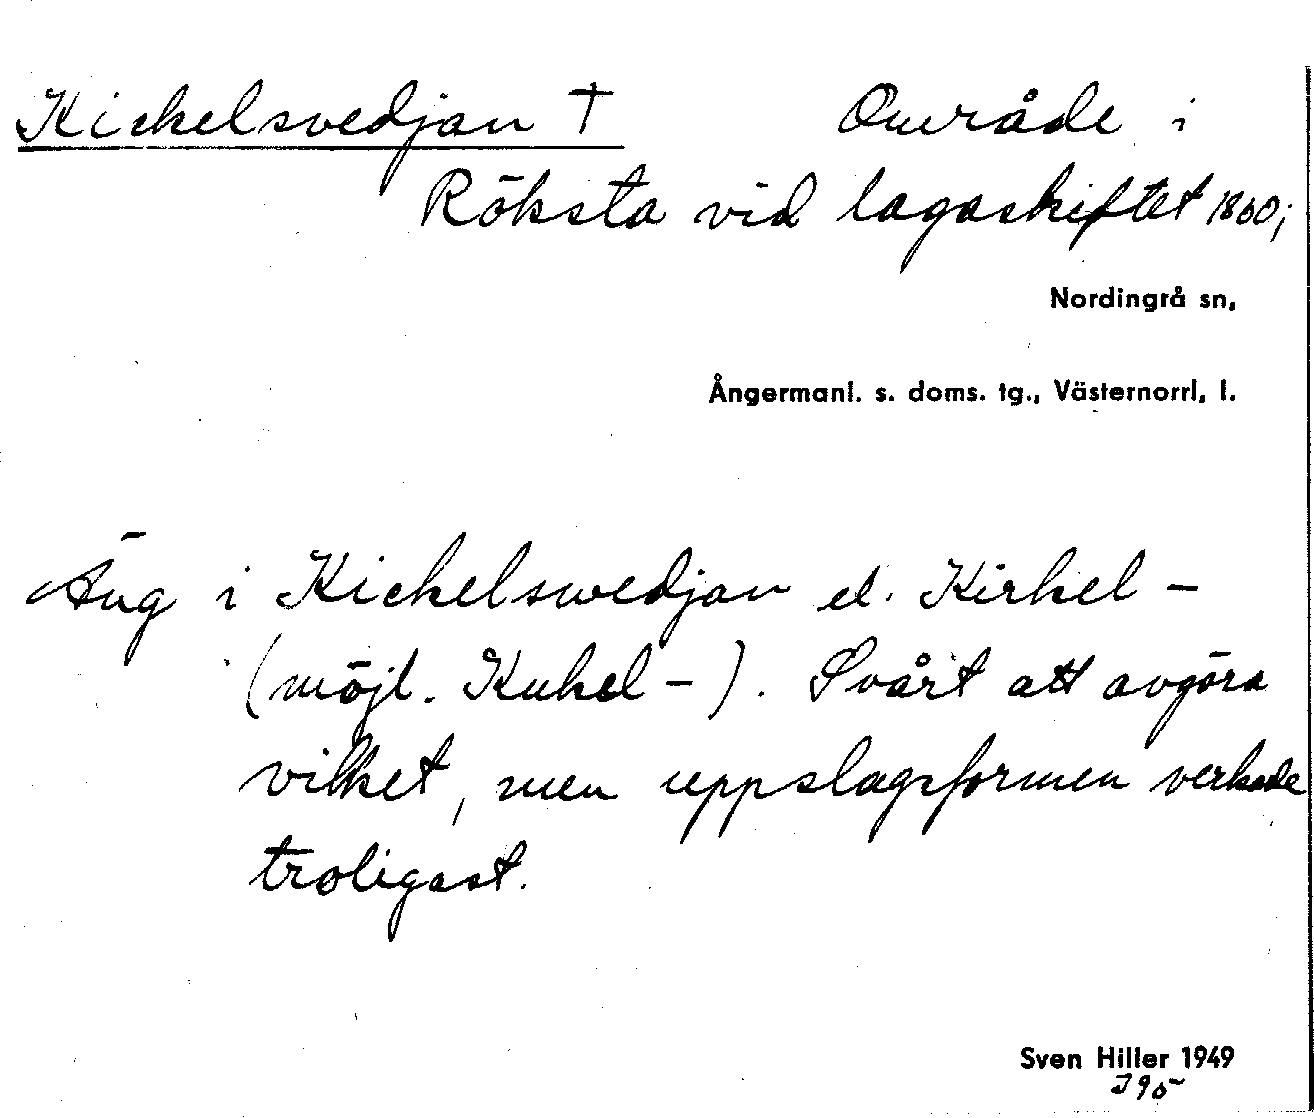 Kickelsvedjan † Område i
Röksta vid lagaskiftet 1860;
Nordingrå sn,
Ångermanl. s. doms. tg., Västernorrl. l.
Äng i Kickelswedjan el. Kirkel-
(möjl. Kukel-). Svårt att avgöra
vilket, men uppslagsformen verkade
troligast.
Sven Hiller 1949